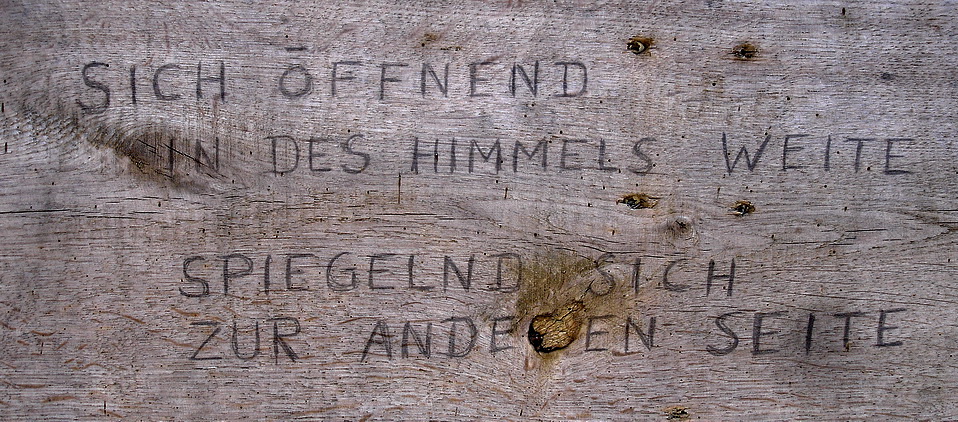 SICH ŌFFNEND
IN DES HIMMELS WEITE
SPIEGELND SICH
ZUR ANDE EN SEITE